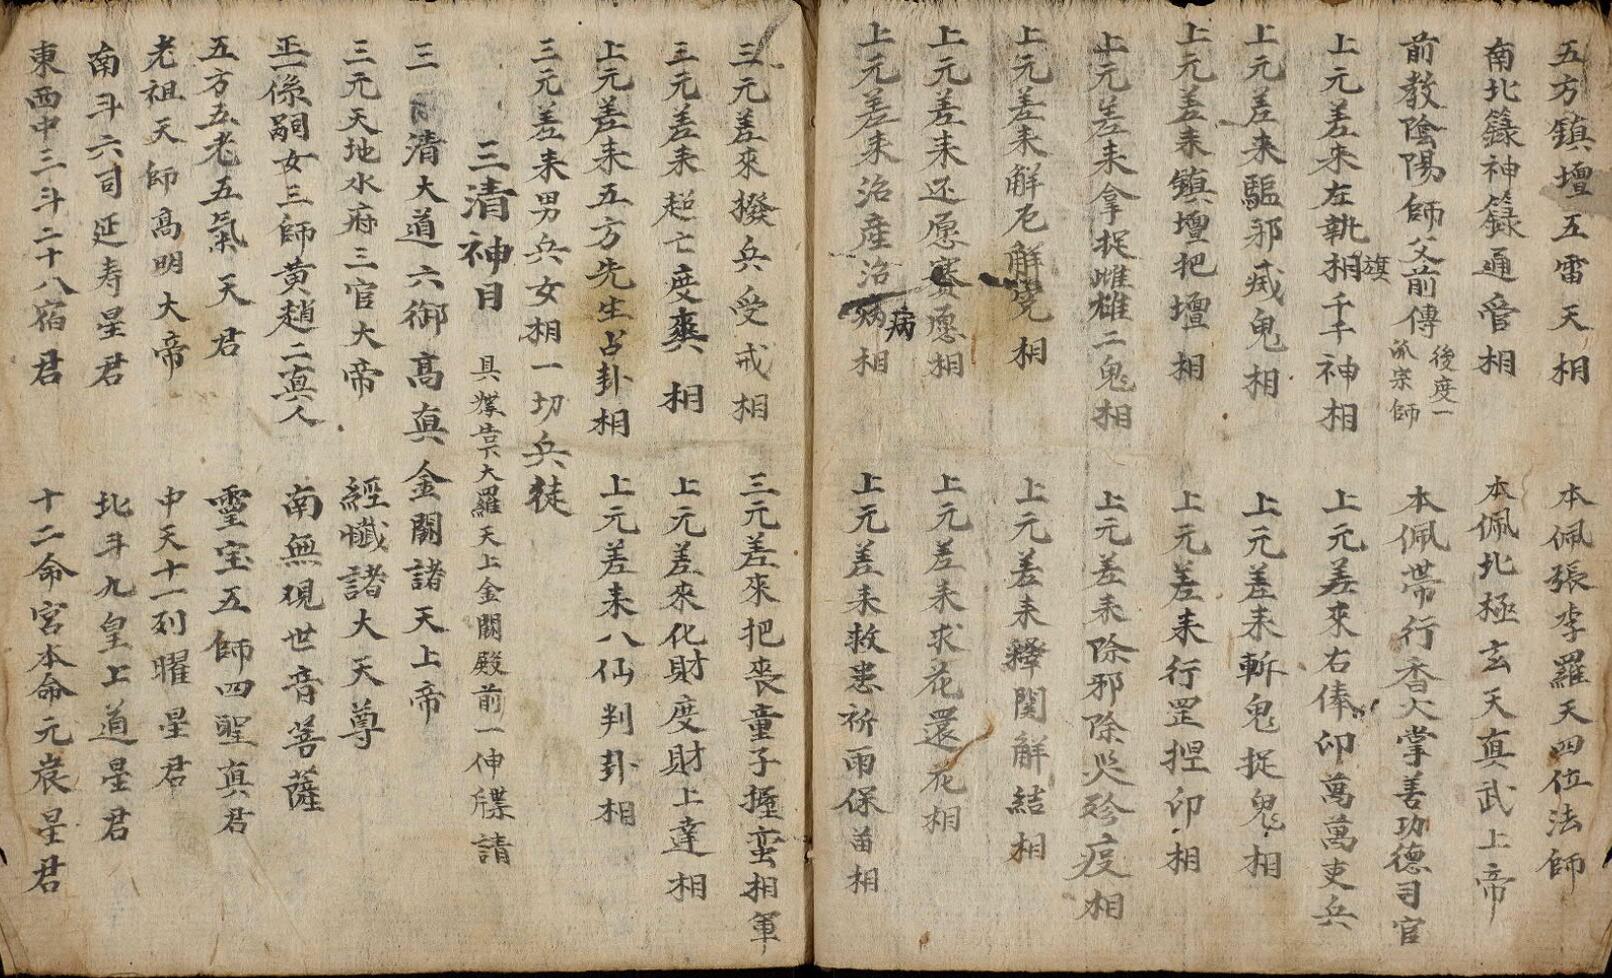 五方鎮壇五雷天相　本佩張李羅天四位法師
南北籙神籙通管相　本佩北極玄天真武上帝
前教陰陽師父前傳後度一派宗師　本佩帶行香火掌善功德司官
上元差來左執旗相千千神相　上元差來右俸印萬萬吏兵
上元差来驅邪滅鬼相　上元差来斬鬼捉鬼相
上元差来鎮壇把壇相　上元差来行罡捏印相
上元差来拿捉雌雄二鬼相　上元差来除邪除災殄疫相
上元差来解厄解冤相　上元差来釋関解結相
上元差来还愿賽愿相　上元差来求花還花相
上元差来治産治病病相　上元差来救患祈雨保苗相
三元差來撥兵受戒相　三元差來把喪童子攞蛮相軍
三元差来超亡度爽相　上元差來化財度財上達相
上元差来五方先生占卦相　上元差来八仙判卦相
三元差来男兵女相一切兵徒
三清神目　具牒靠大羅天上金闕殿前一伸牒請
三清大道六御高真　金闕諸天上帝
三元天地水府三官大帝　經懺諸大天尊
正一係嗣女三師黄趙二真人　南無現世音菩薩
五方五老五氣天君　霊宝五師四聖真君
老祖天師高明大帝　中天十一列曜星君
南斗六司延寿星君　北斗九皇上道星君
東西中三斗二十八宿君　十二命宮本命元辰星君